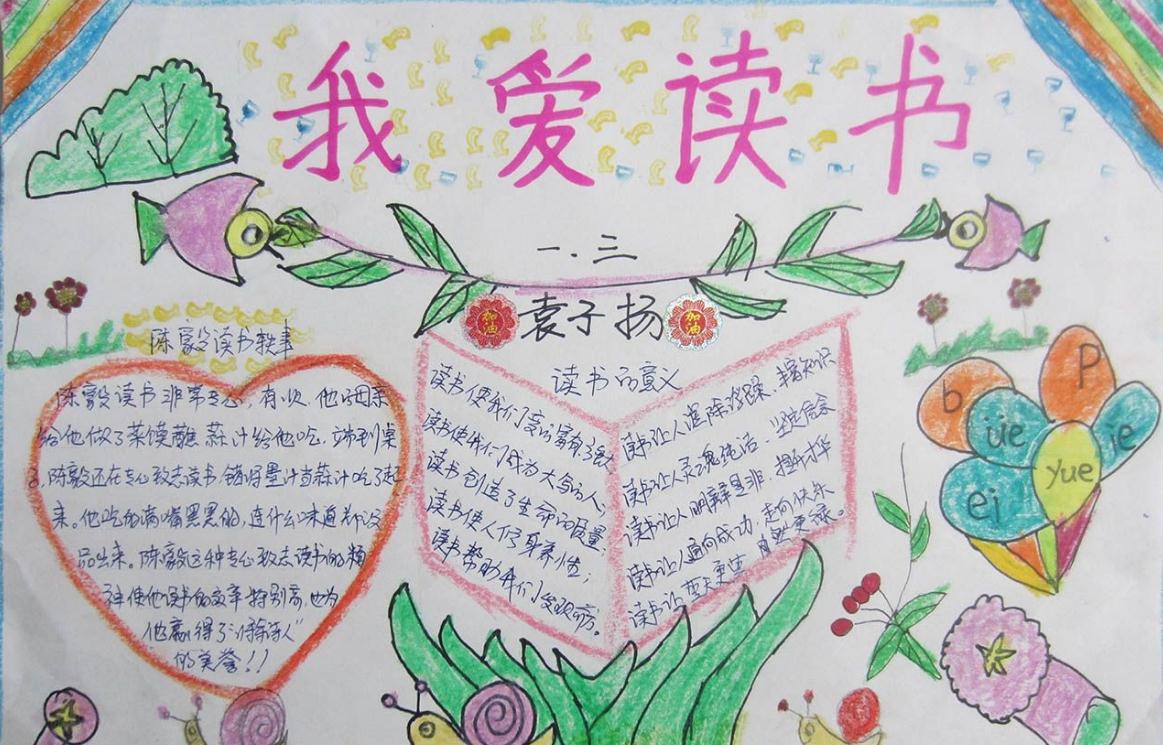 我爱读书
一.三
加油 袁子扬 加油
陈毅读书轶事
陈毅读书非常专心,有一次,他母亲
给他做了菜馍蘸蒜汁给他吃,端到桌
陈毅还在专心致志读书,错将墨汁当蒜汁吃了起
来。他吃的满嘴黑黑的,连什么味道都没
品出来。陈毅这种专心致志读书的精
神使他读书的效率特别高,也为
他赢得了"诗人"
的美誉!!
读书的意义
读书使我们变的富有强大
读书使我们成为大写的人
读书创造了生命的质量;
读书使人们身养性;
读书帮助我们发现
读书让人消除浮躁、丰富知识
读书让人灵魂纯洁、坚定信念
读书让人明辨是非、增长才华
读书让人通向成功,走向快乐
读书让蓝天更 自然更绿。
b
P
üe
ie
yue
ei